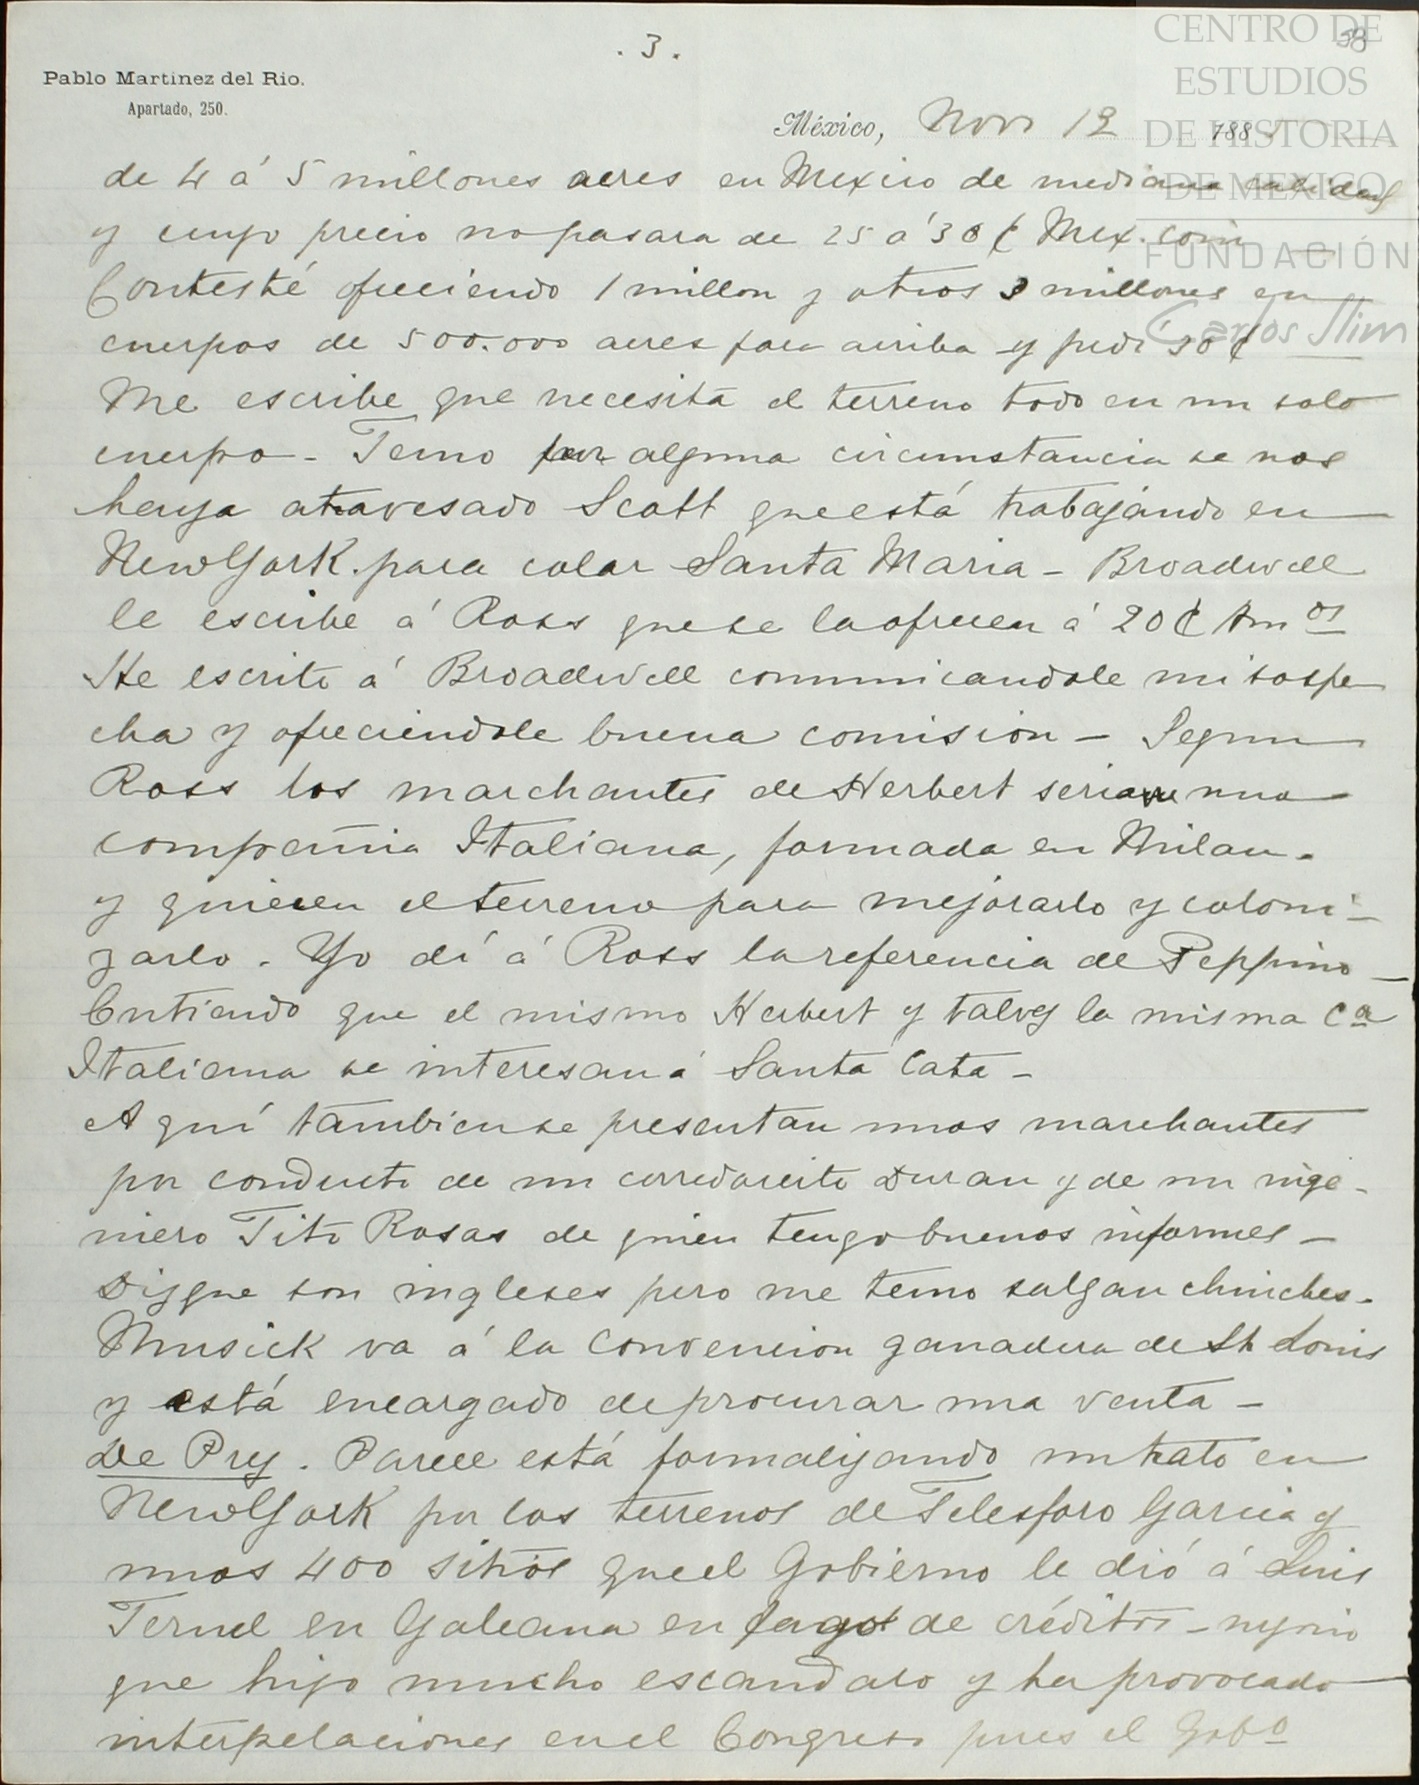 . 3 .
58
CENTRO DE
ESTUDIOS
DE HISTORIA
DE MEXICO
FUNDACIÓN
Carlos Slim
Pablo Martinez del Rio.
Apartado, 250.
México, Nov 12 188
de 4 á 5 millones acres en Mexico de mediana calidad
y cuyo precio no pasara de 25 á 30 ¢ Mex. coin
Contesté ofreciendo 1 millon y otros 3 millones en
cuerpos de 500.000 acres para arriba y pedí 30 ¢
Me escribe que necesita el terreno todo en un solo
cuerpo - Temo por alguna circunstancia se nos
haya atravesado Scott que está trabajando en
New York para colar Santa Maria - Broadwell
le escribe á Ross que se la ofrecen á 20 ¢ Am os
He escrito á Broadwell comunicandole mi sospe
cha y ofreciendole buena comision - Segun
Ross los marchantes de Herbert serian una
compañia Italiana, formada en Milan -
y quieren el terreno para mejorarlo y coloni-
zarlo . Yo dí á Ross la referencia de Peppino -
Entiendo que el mismo Herbert y talvez la misma Cª
Italiana se interesan á Santa Cata -
Aquí tambien se presentan unos marchantes
por conducto de un corredorcito Duran y de un inge-
niero Tito Rosas de quien tengo buenos informes -
Dizque son ingleses pero me temo salgan chinches -
Musick va á la Convencion ganadera de St Louis
y está encargado de procurar una venta -
De Prez . Parece está formalizando un trato en
New York por los terrenos de Telesforo Garcia y
unos 400 sitios que el Gobierno le dió á Luis
Teruel en Galeana en pago de créditos - negocio
que hizo mucho escandalo y ha provocado
interpelaciones en el Congreso pues el Gobº